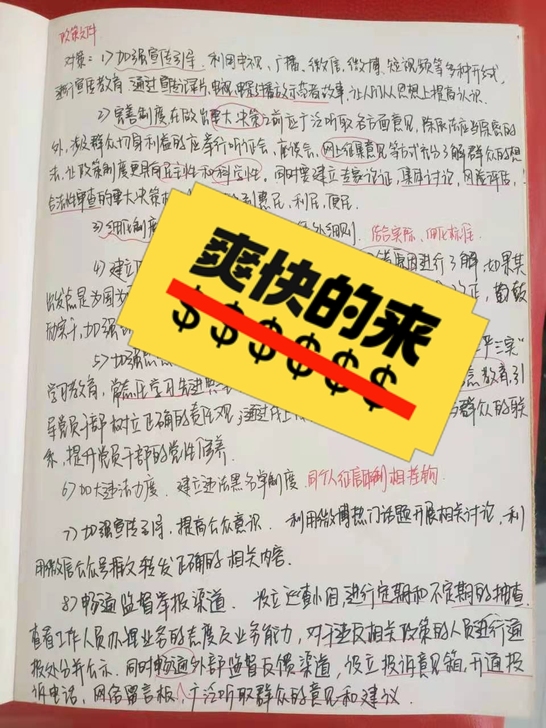 政策文件
对策：1) 加强宣传引导，利用电视、广播、微信、微博、短视频等多种形式
进行宣传教育，通过宣传片，电视、电影播放示范者故事，让人们从思想上提高认识。
2) 完善制度，在政出重大决策之前应广泛听取各方面意见，除依法应当保密的
外，涉及群众切身利益的应举行听证会、座谈会、网上征集意见等方式充分了解群众的想
法，让政策制度更具有民主性和科学性，同时要建立专家论证，集体讨论，风险评估，
合法性审查的重大决策 惠民，利民，便民
3) 细化制度 细则 结合实际，细化标准
4) 建立 原因进行了解，如果其
出发点是为国 鼓
励实干，加强
5) 加强 三严三实"
学习教育，常态化学习先进典 教育，引
导党员干部树立正确的责任观，通过 与群众的联
系，提升党员干部的党性修养。
6) 加大违法力度，建立违法黑名单制度，同个人征信体制相挂钩
7) 加强宣传引导，提高公众意识，利用微博热门话题开展相关讨论，利
用微信公众号推文转发正确的相关内容。
8) 畅通监督举报渠道，设立巡查小组，进行定期和不定期的抽查，
查看工作人员办理业务的态度及业务能力，对于违反相关政策的人员进行通
报处分并公示。同时畅通外部监督反馈渠道，设立投诉意见箱，开通投
诉电话，网络留言板，广泛听取群众的意见和建议。
爽快的来
$$$$$$